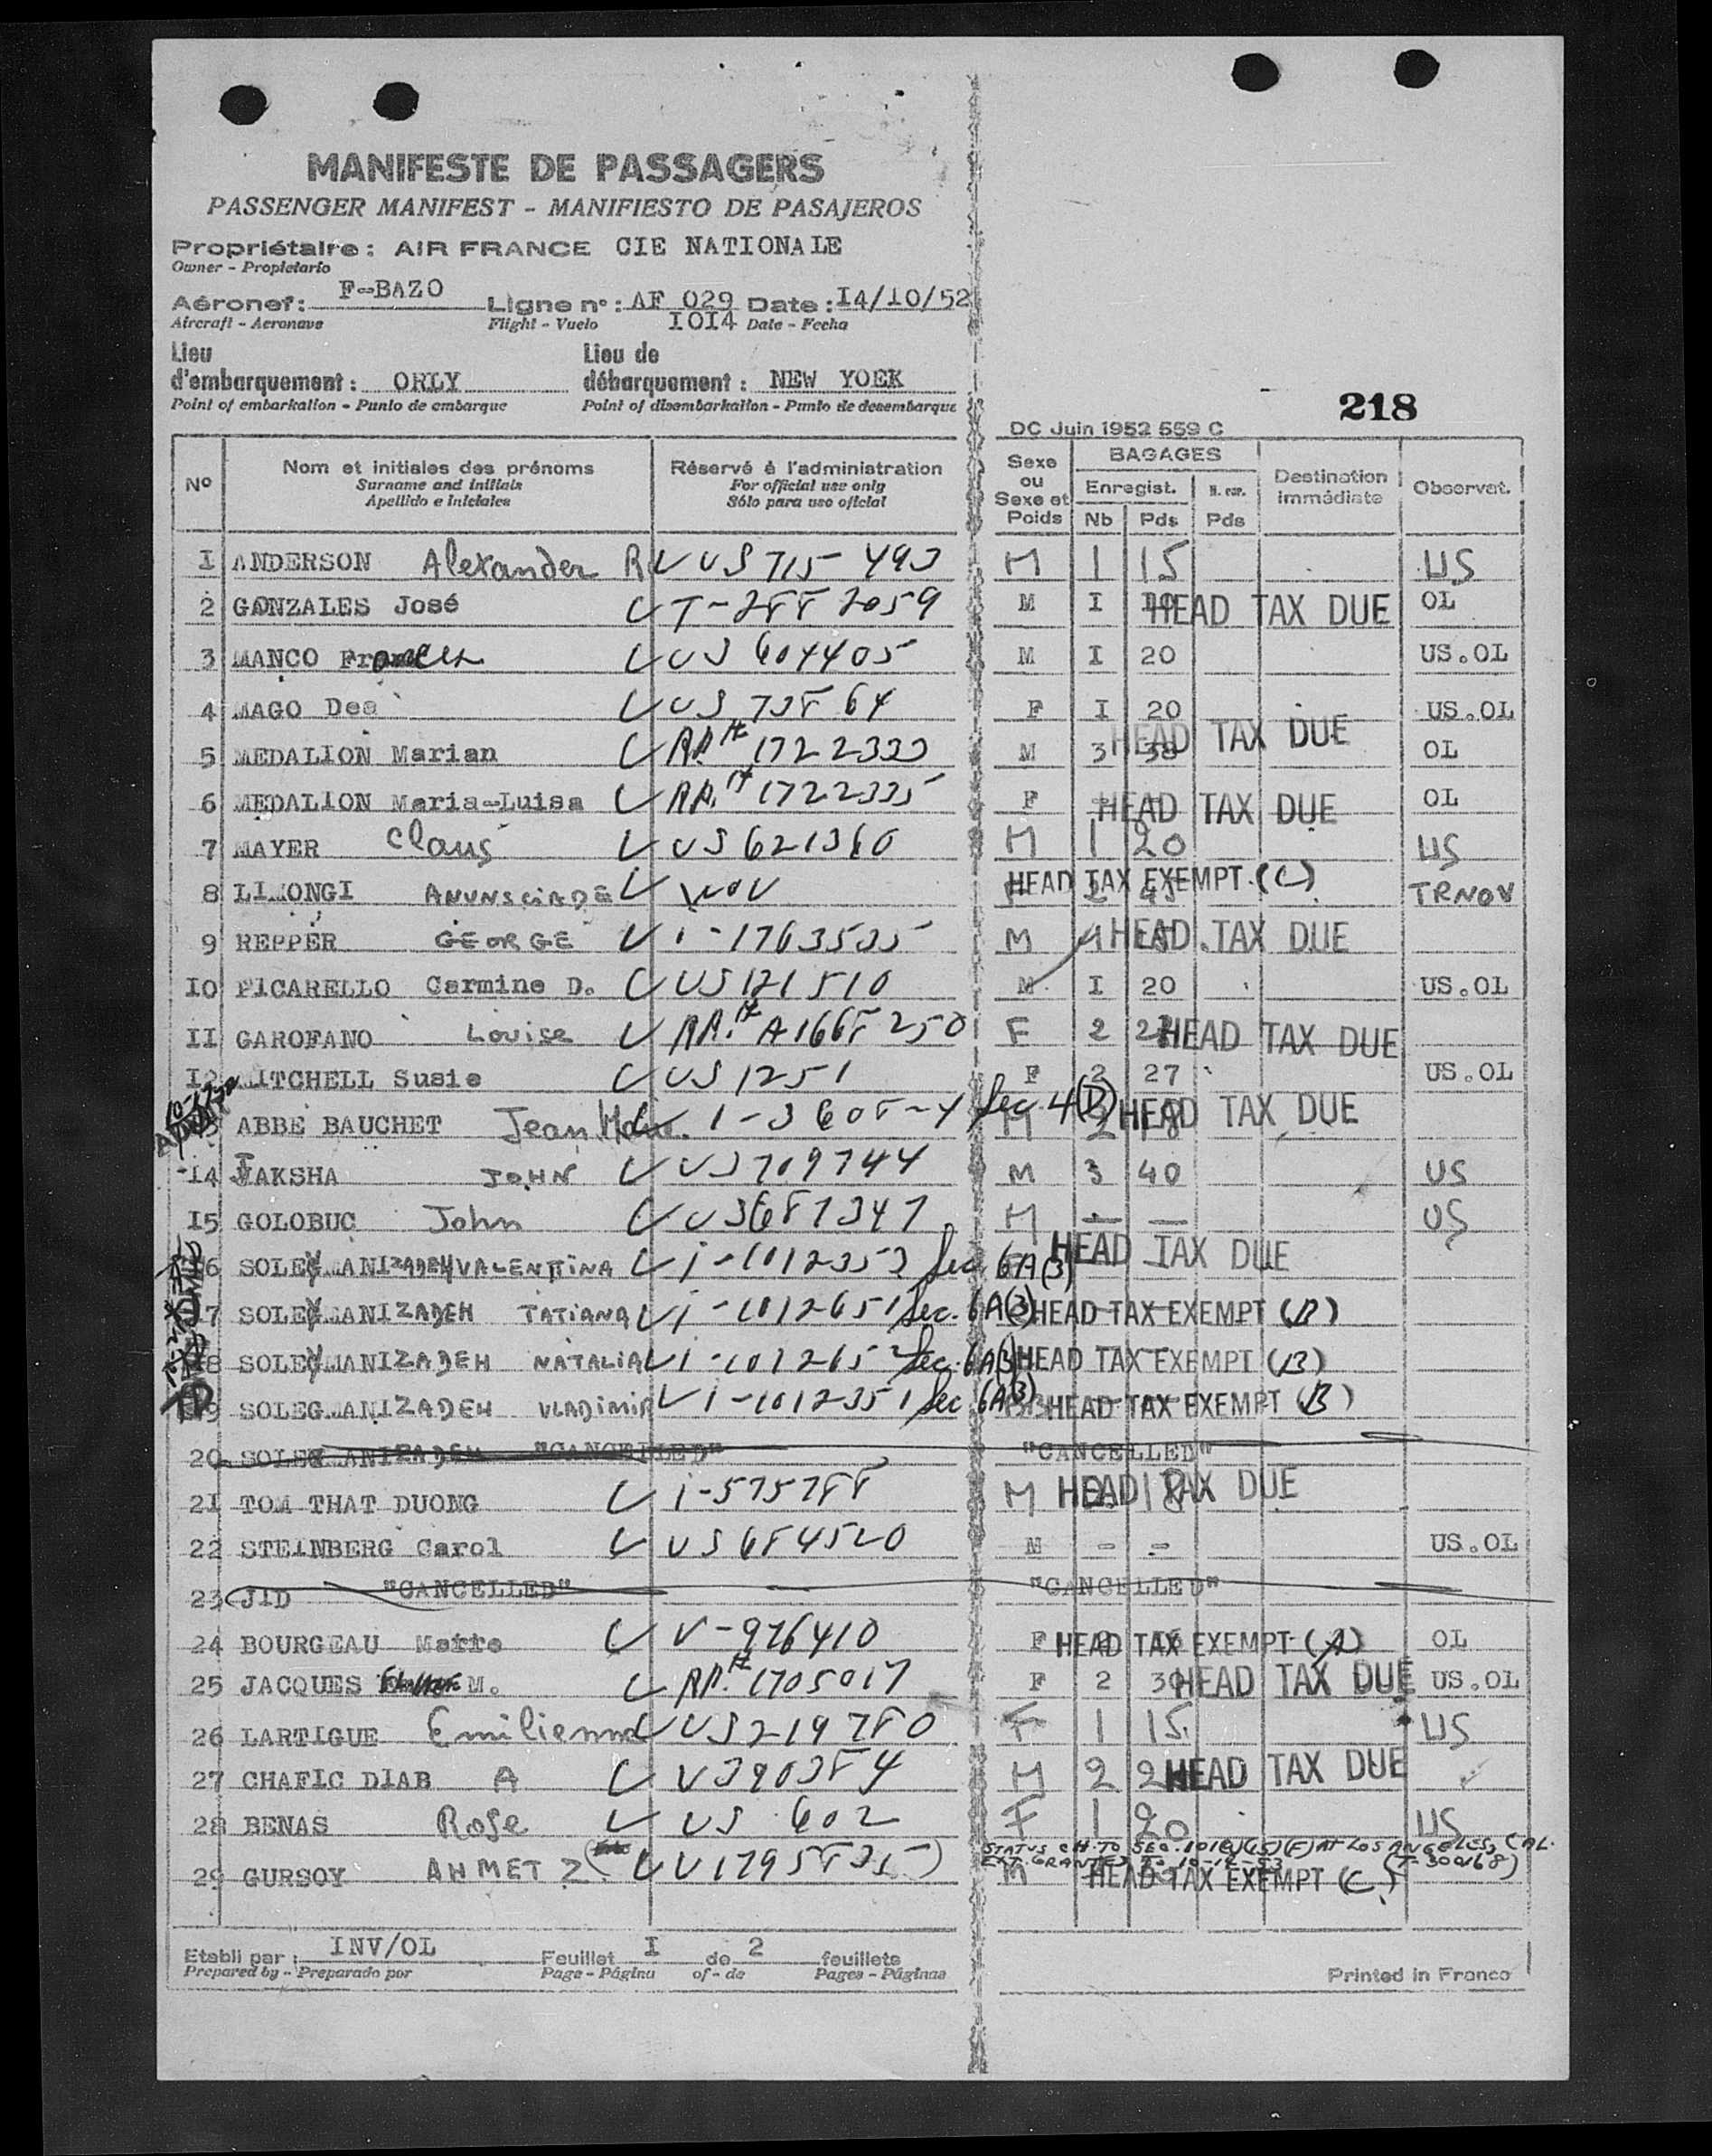 MANIFESTE DE PASSAGERS
PASSENGER MANIFEST - MANIFIESTO DE PASAJEROS
Propriétaire : AIR FRANCE CIE NATIONALE
Owner - Propietario
Aéronef : F-BAZO Ligne n° : AF 029 Date : I4/10/52
Aircraft - Aeronave Flight - Vuelo I0I4 Date - Fecha
Lieu d'embarquement : ORLY Lieu de débarquement : NEW YOEK
Point of embarkation - Punto de embarque Point of disembarkation - Punto de desembarque
218
DC Juin 1952 559 C
N° Nom et initiales des prénoms Réservé à l'administration Sexe ou Sexe et Poids BAGAGES Destination immédiate Observat.
Surname and initials For official use only Enregist. N. enr.
Apellido e iniciales Sólo para uso oficial Nb Pds Pds
I ANDERSON Alexander R US 715 493 M 1 15 US
2 GONZALES José T-288 2059 M I HEAD TAX DUE OL
3 MANCO US 604405 M I 20 US.OL
4 MAGO Dea US 738 64 F I 20 US.OL
5 MEDALION Marian 1722333 M 3 38 HEAD TAX DUE OL
6 MEDALION Maria-Luisa 1722335 F HEAD TAX DUE OL
7 MAYER Claus US 621360 M 1 20 US
8 LIMONGI ANUNSCIADE HEAD TAX EXEMPT (C) TRNOV
9 REPPER GEORGE i-1763535 M HEAD TAX DUE
IO PICARELLO Carmine D. US 121510 M I 20 US.OL
II GAROFANO Louise A1668250 F 2 HEAD TAX DUE
I2 MITCHELL Susie US 1251 F 2 27 US.OL
ABBE BAUCHET Jean 1-3608-4 Sec 4(D) M 2 18 HEAD TAX DUE
I4 JAKSHA JOHN US 709744 M 3 40 US
I5 GOLOBUC John US 687347 M — — US
I6 SOLEYMANIZADEH VALENTINA i-1012353 Sec 6A(3) HEAD TAX DUE
I7 SOLEYMANIZADEH TATIANA i-1012651 Sec. 6A(3) HEAD TAX EXEMPT (B)
I8 SOLEYMANIZADEH NATALIA i-1012652 Sec. 6A(3) HEAD TAX EXEMPT (B)
I9 SOLEGMANIZADEH VLADIMIR i-1012351 Sec 6A(3) HEAD TAX EXEMPT (B)
20 "CANCELLED" "CANCELLED"
2I TOM THAT DUONG i-575788 M HEAD TAX DUE
22 STEINBERG Carol US 684520 M - - US.OL
23 JID "CANCELLED" "CANCELLED"
24 BOURGEAU V-926410 F HEAD TAX EXEMPT (A) OL
25 JACQUES M. 1705017 F 2 30 HEAD TAX DUE US.OL
26 LARTIGUE Emilienne US 219780 F 1 15 US
27 CHAFIC DIAB A V390384 M 2 HEAD TAX DUE
28 BENAS Rose US 602 F 1 20 US
STATUS CH. TO SEC. 101(a)(15)(F) AT LOS ANGELES, CAL.
EXT. GRANTED TO 10-12-53 (T-300168)
29 GURSOY AHMET Z. V1795835 M HEAD TAX EXEMPT (C)
Etabli par : INV/OL Feuillet I de 2 feuillets
Prepared by - Preparado por Page - Página of - de Pages - Páginas
Printed in France